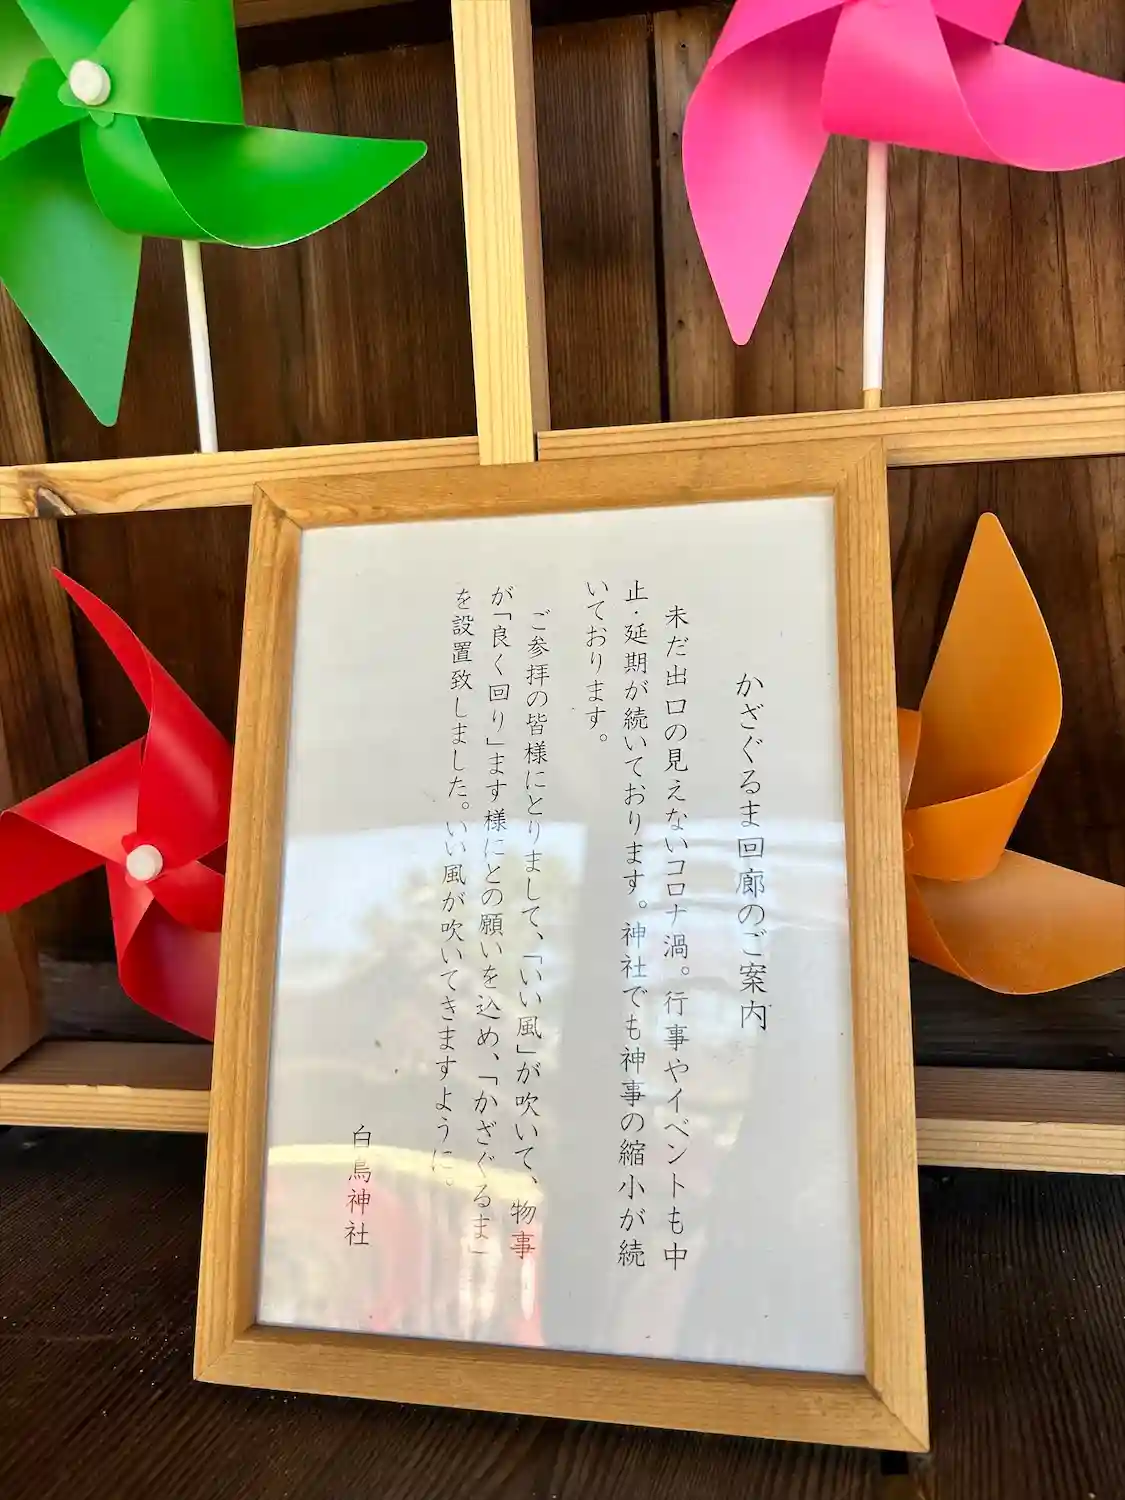 かざぐるま回廊のご案内
未だ出口の見えないコロナ渦。行事やイベントも中
止・延期が続いております。神社でも神事の縮小が続
いております。
ご参拝の皆様にとりまして、「いい風」が吹いて、物事
が「良く回り」ます様にとの願いを込め、「かざぐるま」
を設置致しました。いい風が吹いてきますように。
白鳥神社